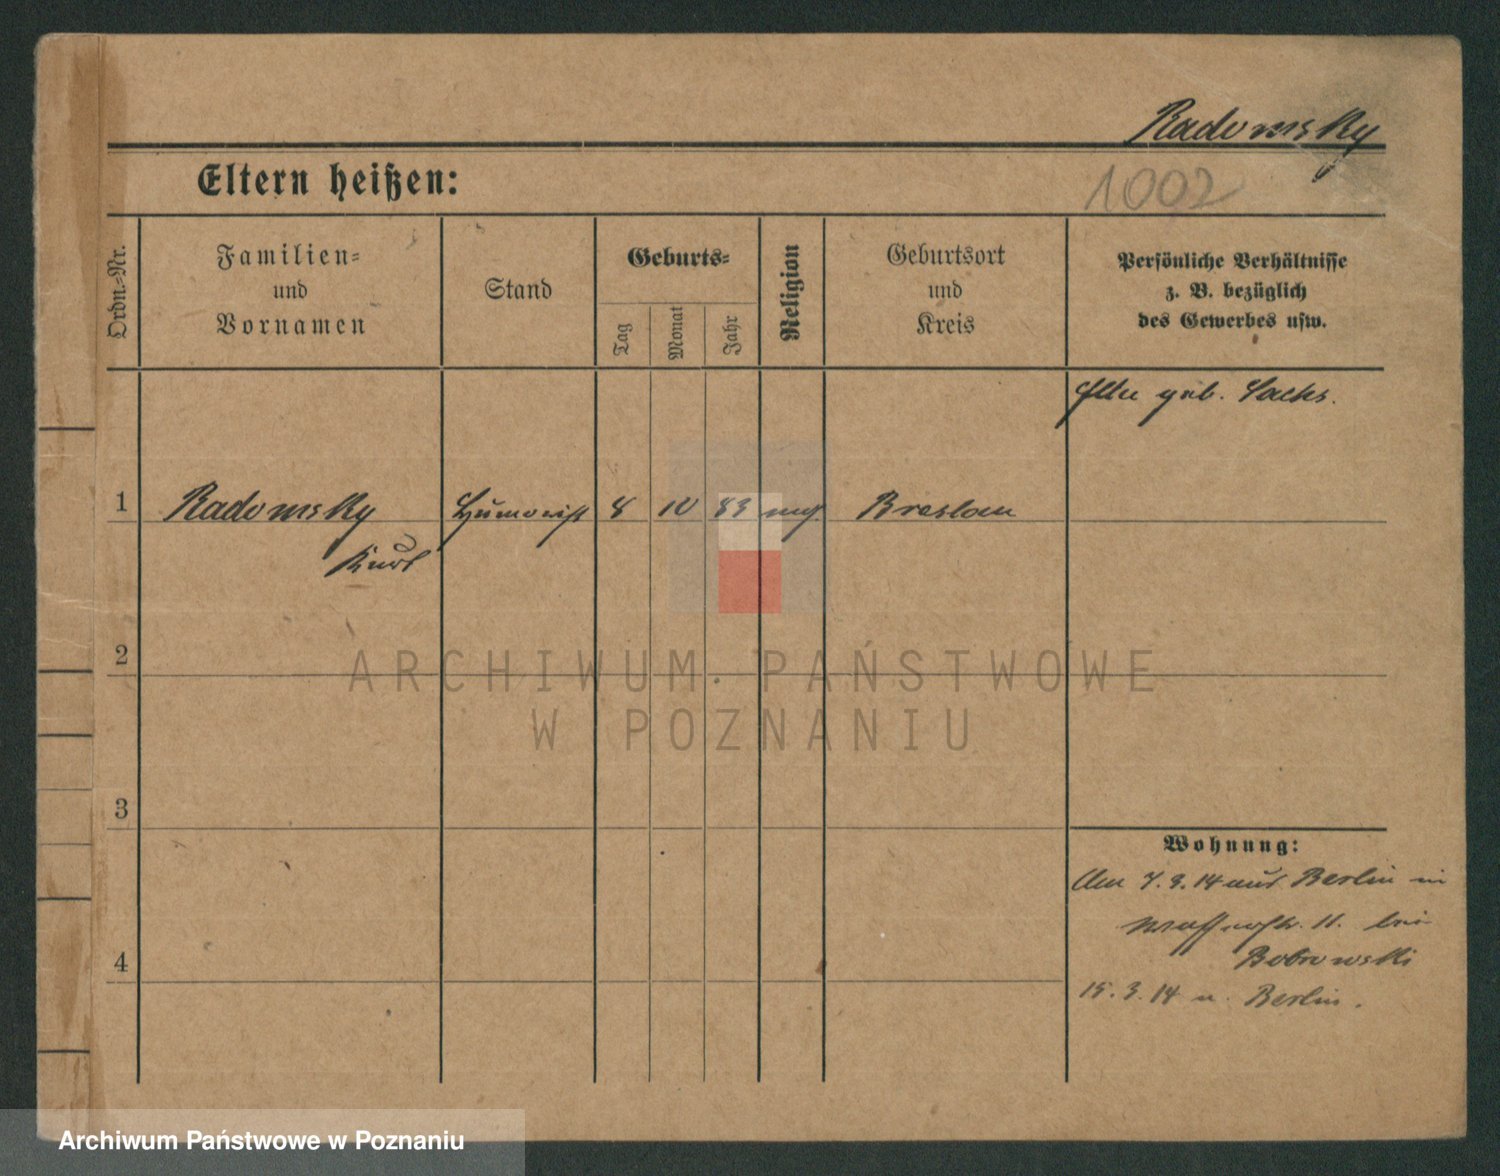 Radomsky
Eltern heißen:
1002
Ordn.-Nr.
Familien-
und
Vornamen
Stand
Geburts-
Tag
Monat
Jahr
Religion
Geburtsort
und
Kreis
Persönliche Verhältnisse
z. B. bezüglich
des Gewerbes usw.
geb. Sachs.
1
Radomsky
Kurt
Humorist
8
10
83
Breslau
2
3
4
Wohnung:
Am 7.3.14 aus Berlin in
11. bei
Bobrowski
15.3.14 n. Berlin.
ARCHIWUM PAŃSTWOWE
W POZNANIU
Archiwum Państwowe w Poznaniu